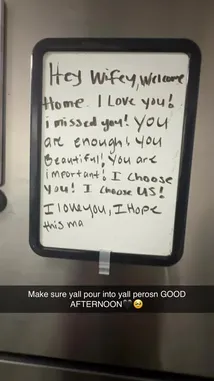 Hey Wifey, Welcome
Home. I Love you!
i missed you! You
are enough! you
Beautiful! You are
important! I choose
you! I choose US!
I love you, I Hope
this ma
Make sure yall pour into yall perosn GOOD
AFTERNOON🖤🥹